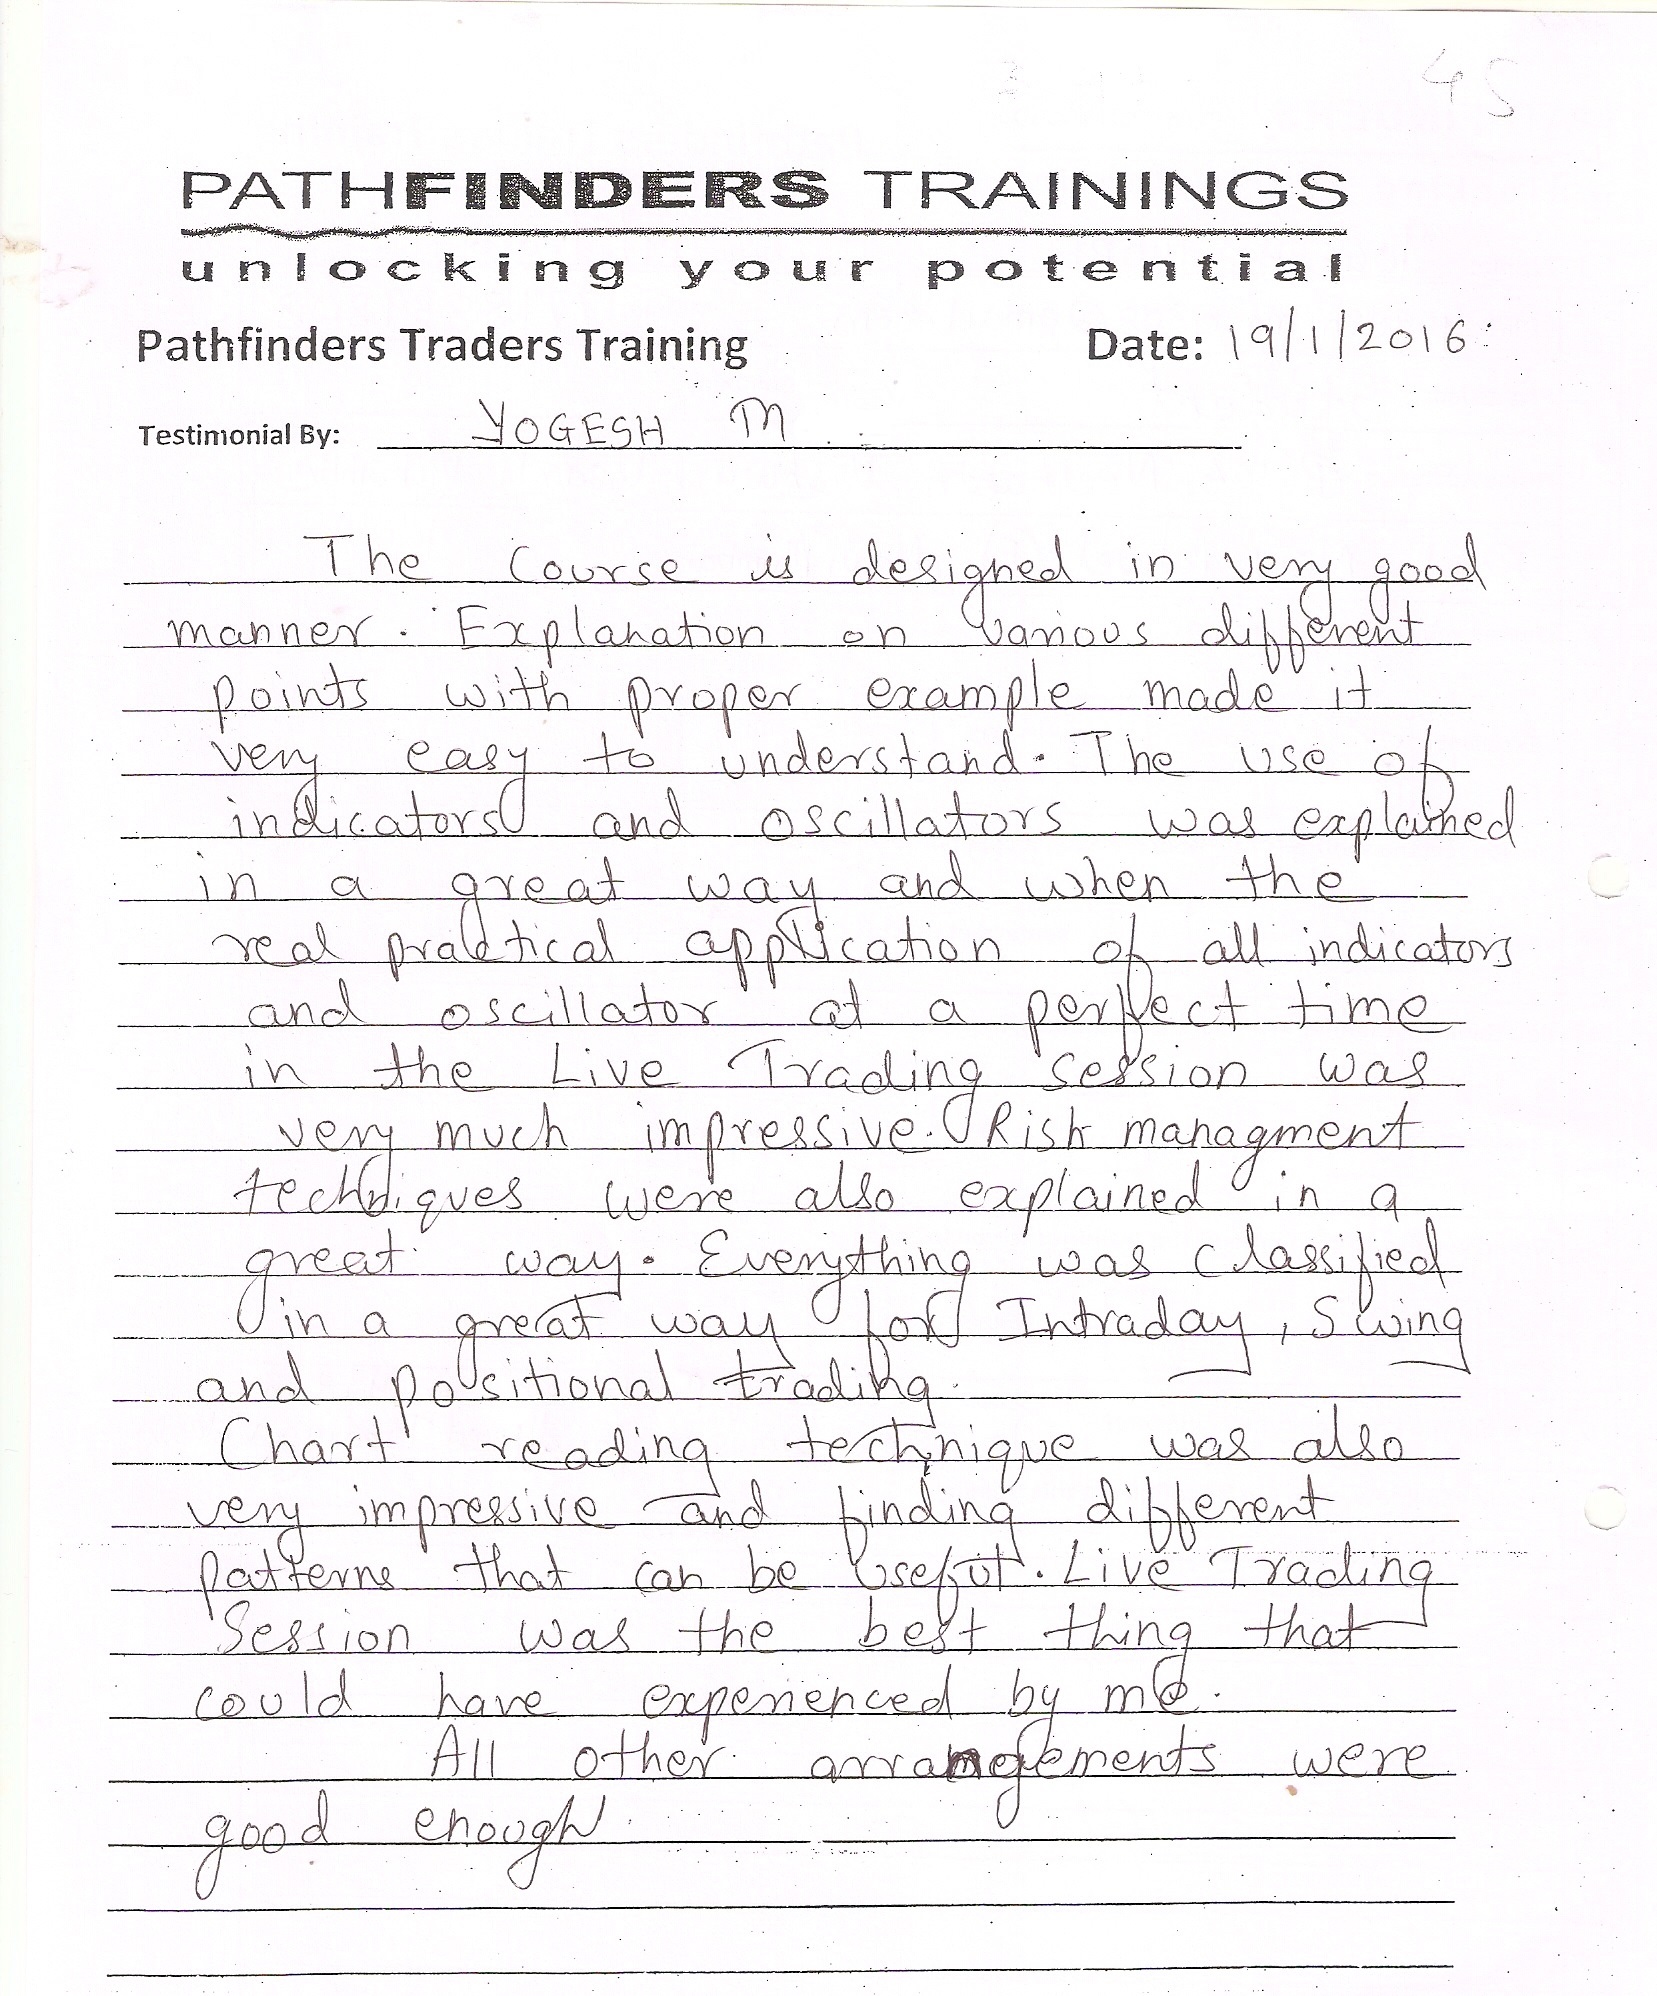 45
PATHFINDERS TRAININGS
unlocking your potential
Pathfinders Traders Training Date: 19/1/2016
Testimonial By: YOGESH M
The Course is designed in very good
manner. Explanation on various different
points with proper example made it
very easy to understand. The use of
indicators and oscillators was explained
in a great way and when the
real practical application of all indicators
and oscillator at a perfect time
in the Live Trading session was
very much impressive. Risk managment
techniques were also explained in a
great way. Everything was classified
in a great way for Intraday, Swing
and positional trading.
Chart reading technique was also
very impressive and finding different
patterns that can be useful. Live Trading
Session was the best thing that
could have experienced by me.
All other arrangements were
good enough